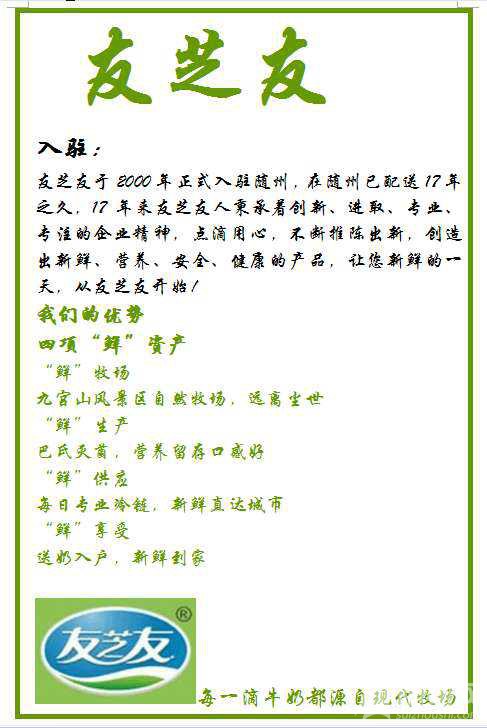 友芝友
入驻：
友芝友于2000年正式入驻随州，在随州已配送17年
之久，17年来友芝友人秉承着创新、进取、专业、
专注的企业精神，点滴用心，不断推陈出新，创造
出新鲜、营养、安全、健康的产品，让您新鲜的一
天，从友芝友开始！
我们的优势
四项“鲜”资产
“鲜”牧场
九宫山风景区自然牧场，远离尘世
“鲜”生产
巴氏灭菌，营养留存口感好
“鲜”供应
每日专业冷链，新鲜直达城市
“鲜”享受
送奶入户，新鲜到家
友芝友®
每一滴牛奶都源自现代牧场